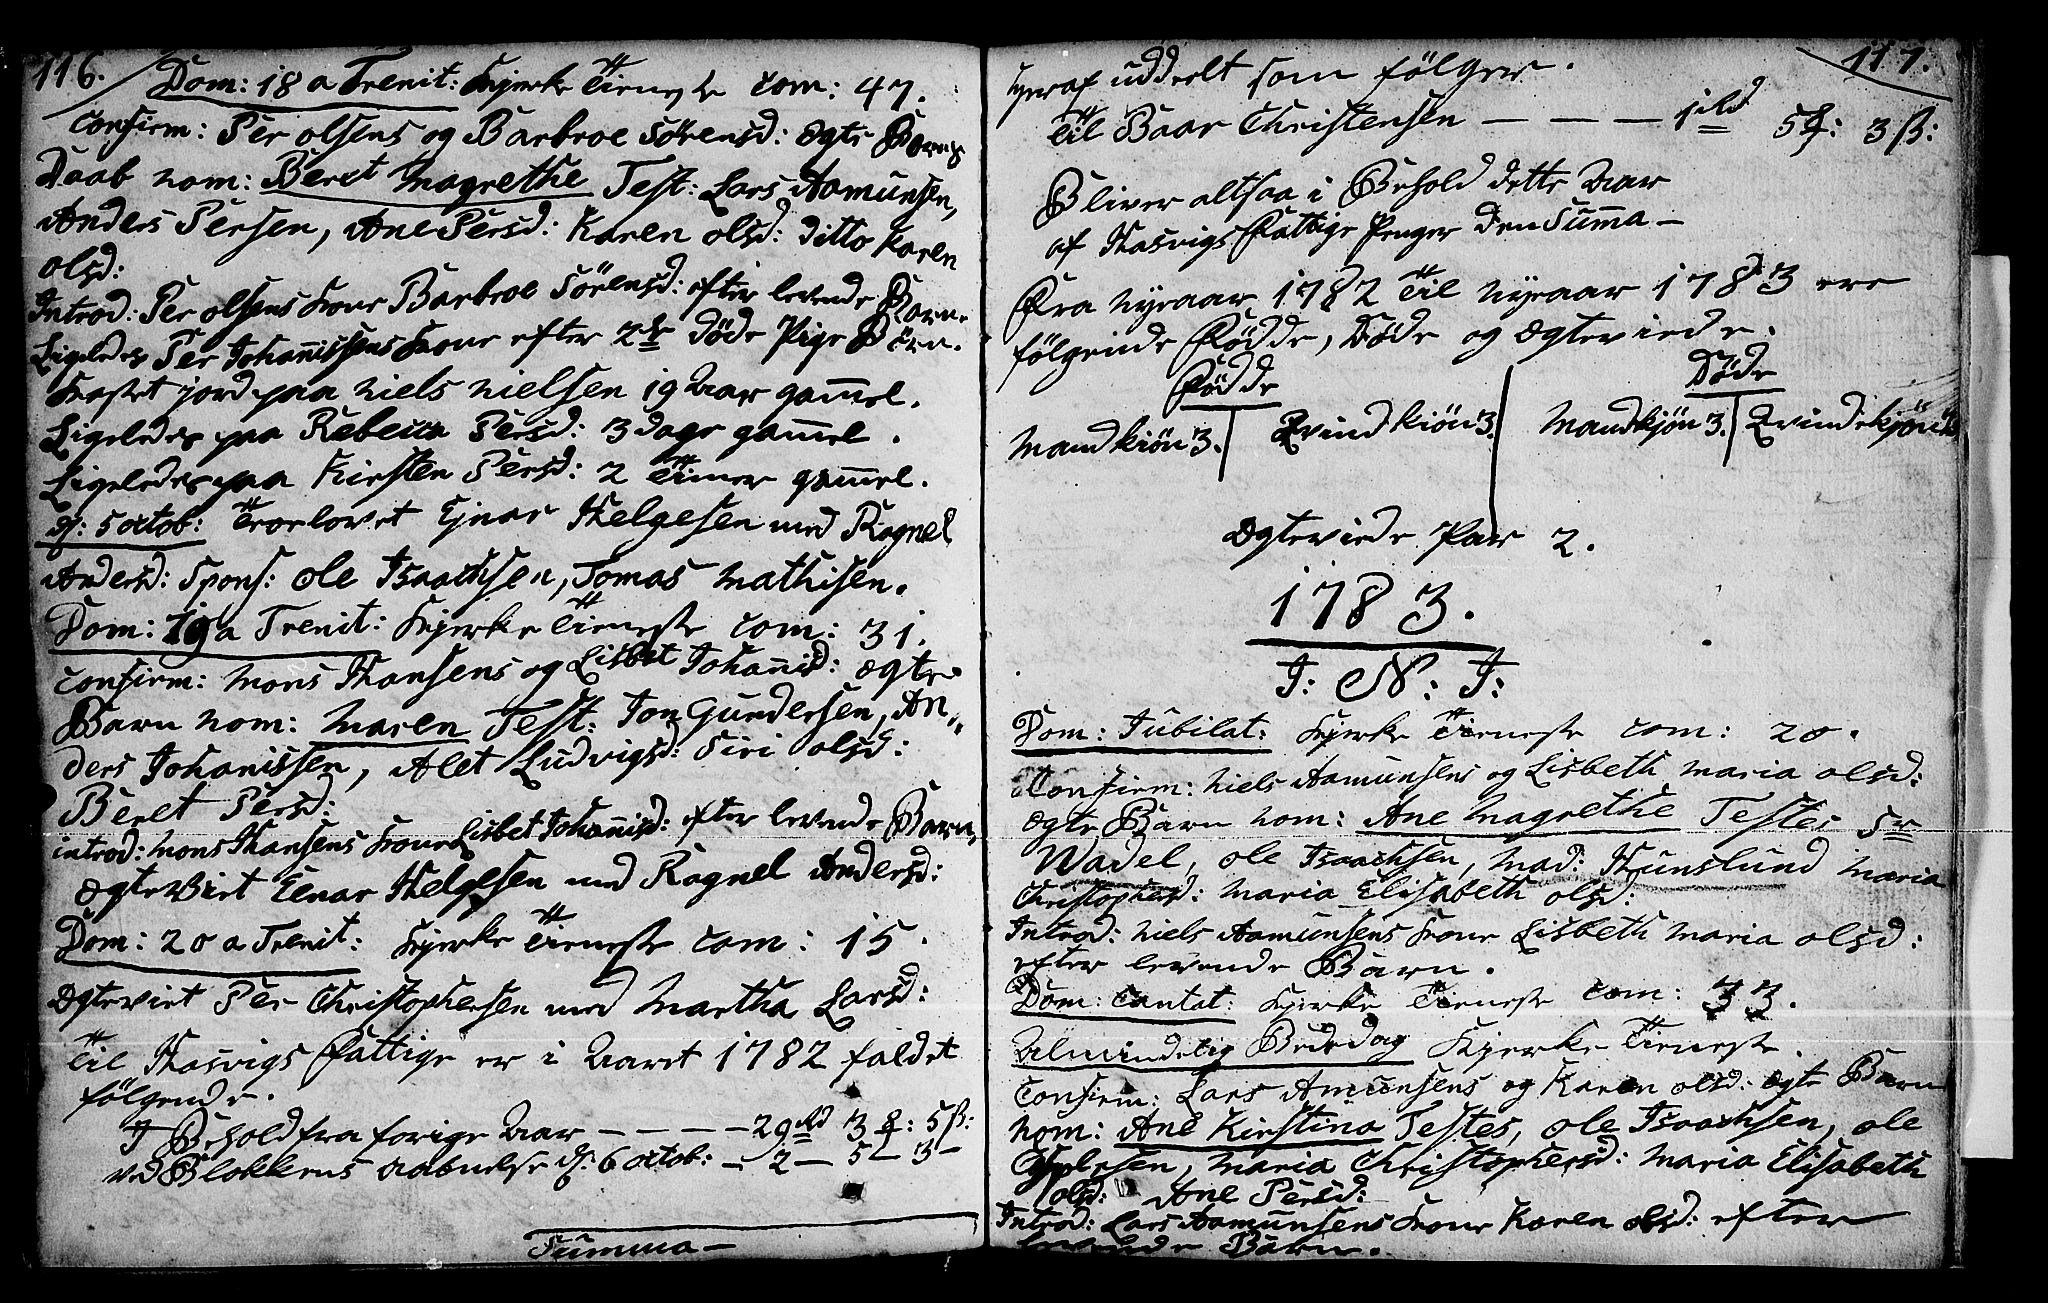 116.
Dom: 18 a Trenit: Kjerke Tieneste com: 47.
Confirm: Per olsens og Barbroe Sörensd: ægte Barns
Daab nom: Beret Magrethe Test: Lars Aamunsen,
Anders Persen, Ane Persd: Karen olsd: ditto Karen
olsd:
Introd: Per olsens kone Barbroe Sörensd: efter levende Barn.
Ligeledes Per Johannissens kone efter 2de döde Pige Börn.
Kastet jord paa Niels Nielsen 19 Aar gammel.
Ligeledes paa Rebecca Persd: 3 dage gammel.
Ligeledes paa Kirsten Persd: 2 Timer gammel.
d: 5 octob: Trorlovet Ejnar Helgesen med Ragnel
Andersd: Spons: ole Isaachsen, Tomas Mathisen.
Dom: 19 a Trenit: Kjerke Tieneste com: 31.
Confirm: Mons Hansens og Lisbet Johannisd: ægte
Barn nom: Maren Test: Jon Gundersen, An-
ders Johanissen, Alet Ludvigsd: Siri olsd:
Beret Persd:
introd: Mons Hansens kone Lisbet Johannisd: efter levende Barn,
ægtevirt Einar Helgesen med Ragnel Andersd:
Dom: 20 a Trenit: Kjerke Tieneste com: 15.
Ægtevirt Per Christophersen med Martha Larsd:
Til Hasvigs Fattige er i Aaret 1782 faldet
fölgende.
I Behold fra forige Aar - - - - 29 rd 3 : 5 ß:
ved Blokkens aabnelse d: 6 octob: - 2 - 5 - 3 -
Summa -
117.
hvoraf uddeelt som fölger.
Til Baar Christensen - - - - 1 rd 5 : 3 ß:
Bliver altsaa i Behold dette Aar
af Hasvigs Fattige Penger den Summa -
Fra Nyeaar 1782 Til Nyeaar 1783 ere
fölgende Födde, Döde og ægteviede.
Födde Döde
Mandkiön 3. Qvindkiön 3. Mandkjön 3. Qvindekjön
Ægteviede Par 2.
1783.
I: N: J:
Dom: Jubilat: Kjerke Tieneste com: 20.
Confirm: Niels Aamunsens og Lisbeth Maria olsd:
ægte Barn nom: Ane Magrethe Testes Sr
Wadel, ole Isaachsen, Mad: Hunslund Maria
Christophersd: Maria Elisabeth olsd:
Introd: Niels Aamunsens kone Lisbeth Maria olsd:
efter levende Barn.
Dom: Cantat: Kjerke Tieneste com: 33.
Almindelig Bededag Kjerke Tieneste.
Confirm: Lars Amunsens og Karen olsd: ægte Barn
nom: Ane Kirstina Testes, ole Isaachsen, ole
Maria Christophersd: Maria Elisabeth
olsd: Ane Persd:
Introd: Lars Aamunsens kone Karen olsd: efter
levende Barn.